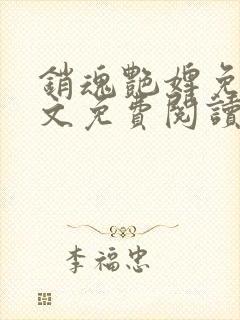 銷魂艷婢免
文免費閱讀
李福忠